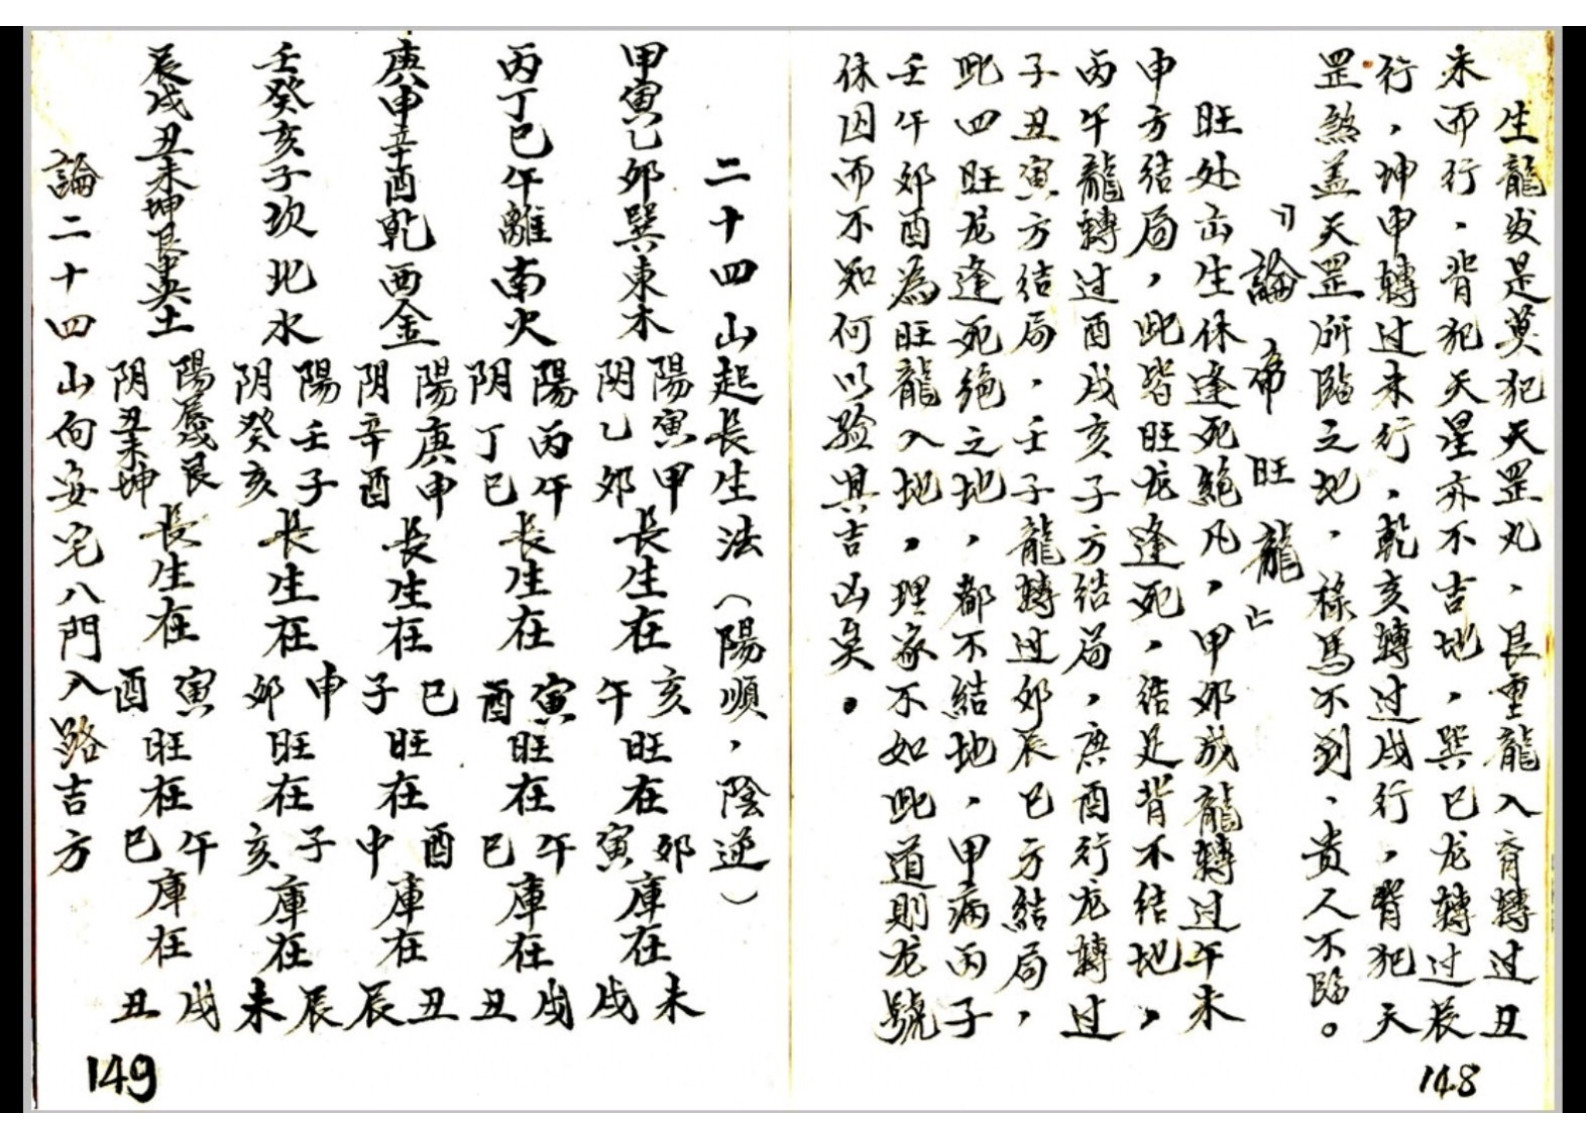 生龍发是莫犯天罡丸、艮重龍入脊轉过丑
未而行、背犯天星亦不吉地，巽巳龙轉过辰
行，坤申轉过未行、乾亥轉过戌行，背犯天
罡煞盖天罡所臨之地，禄馬不到、贵人不臨。
〃論帝旺龍〃
旺处击生休逢死絶凡，甲卯成龍轉过午未
申方结局，此皆旺龙逢死，结足背不结地，
丙午龍轉过酉戌亥子方结局，庚酉行龙轉过
子丑寅方结局，壬子龍轉过卯辰巳方結局，
此四旺龙逢死绝之地，都不結地，甲病丙子
壬午卯酉為旺龍入地，理家不如此道則龙號
休囚而不知何以验其吉凶矣。
148
二十四山起長生法（陽順，陰逆）
甲寅乙卯巽東木 陽寅甲 阴乙卯 長生在 亥 午 旺在 卯 寅 庫在 未 戌
丙丁巳午離南火 陽丙午 阴丁巳 長生在 寅 酉 旺在 午 巳 庫在 戌 丑
庚申辛酉乾西金 陽庚申 阴辛酉 長生在 巳 子 旺在 酉 申 庫在 丑 辰
壬癸亥子坎北水 陽壬子 阴癸亥 長生在 申 卯 旺在 子 亥 庫在 辰 未
辰戌丑未坤艮中央土 陽辰戌艮 阴丑未坤 長生在 寅 酉 旺在 午 巳 庫在 戌 丑
論二十四山向安宅八門入路吉方
149